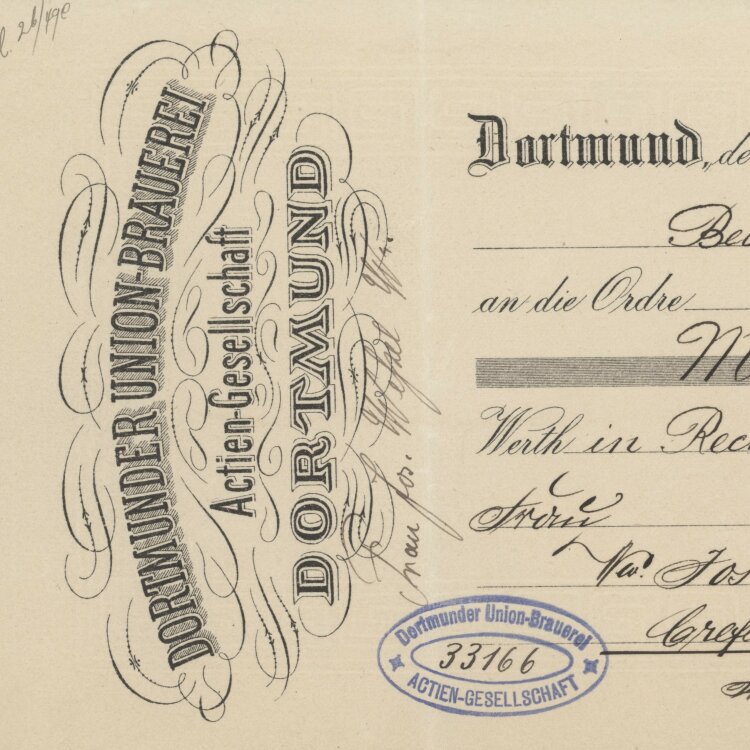 DORTMUNDER UNION-BRAUEREI
Actien-Gesellschaft
DORTMUND
Dortmund, de
an die Ordre
M
Werth in Rec
Frau
Ww. Jos
Crefe
Dortmunder Union-Brauerei
33166
ACTIEN-GESELLSCHAFT
Frau Jos.